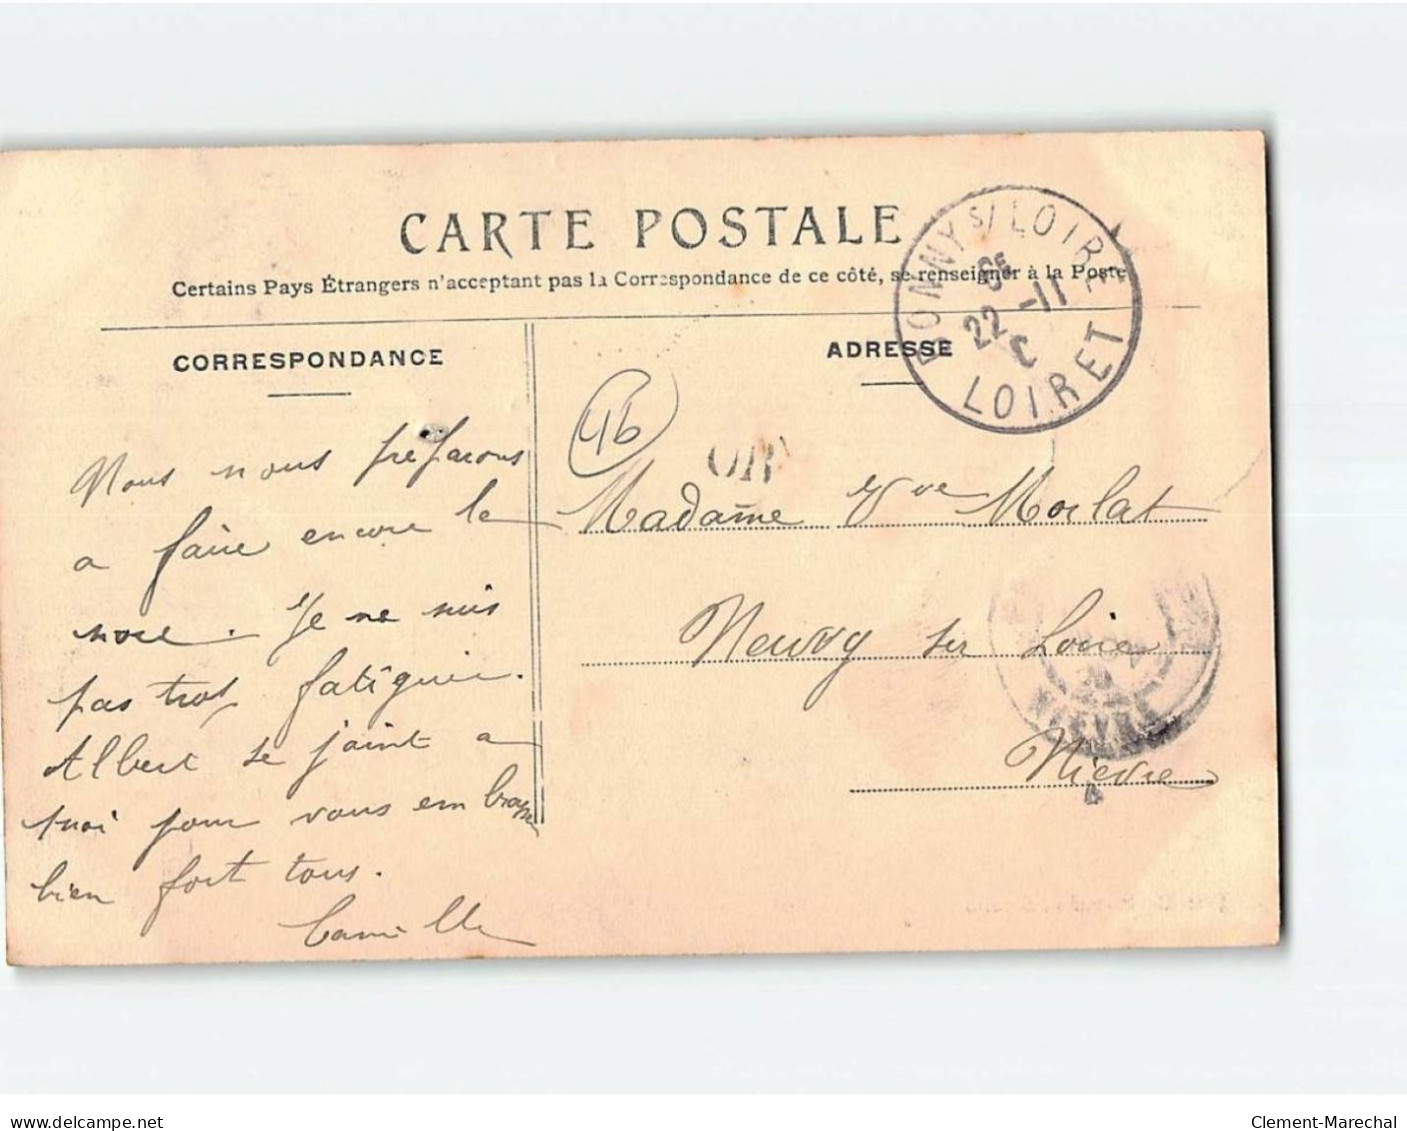 CARTE POSTALE
Certains Pays Étrangers n'acceptant pas la Correspondance de ce côté, se renseigner à la Poste
CORRESPONDANCE
ADRESSE
BONNY S/ LOIRE
6E
22 - 11
C
LOIRET
46
OR
Nous nous préparons
a faire encore la
noce. Je ne suis
pas trop fatiguée.
Albert se joint a
moi pour vous embrasser
bien fort tous.
Camille
Madame Vve Morlat
Neuvy sur Loire
Nièvre
NIEVRE
4
www.delcampe.net
Clement-Marechal